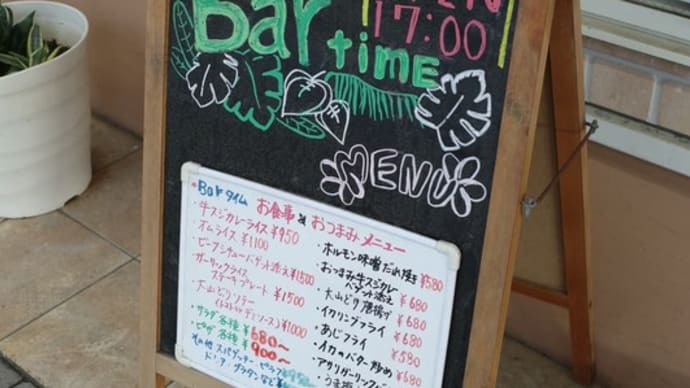 OPEN
Bar 17:00
time
MENU
Barタイム お食事&おつまみメニュー
・牛スジカレーライス ¥950
・オムライス ¥1100
・ビーフシチューバゲット添え ¥1500
・ガーリックライス
ステーキプレート ¥1500
・大山どりソテー
(トマトor デミソース) ¥1000
・サラダ各種 ¥680〜
・ピザ 各種 ¥900〜
その他 スパゲッティ ピラフ
ドリア、グラタンなど
・ホルモン味噌だれ焼き ¥580
・おつまみ牛スジカレー
バゲット添え ¥680
・大山どり唐揚げ ¥680
・イカリングフライ ¥680
・あじフライ ¥580
・イカのバター炒め ¥680
・アサリガーリック